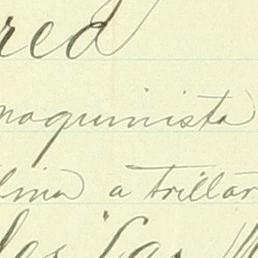 red
maquinista
lina a trillar
les "Las M